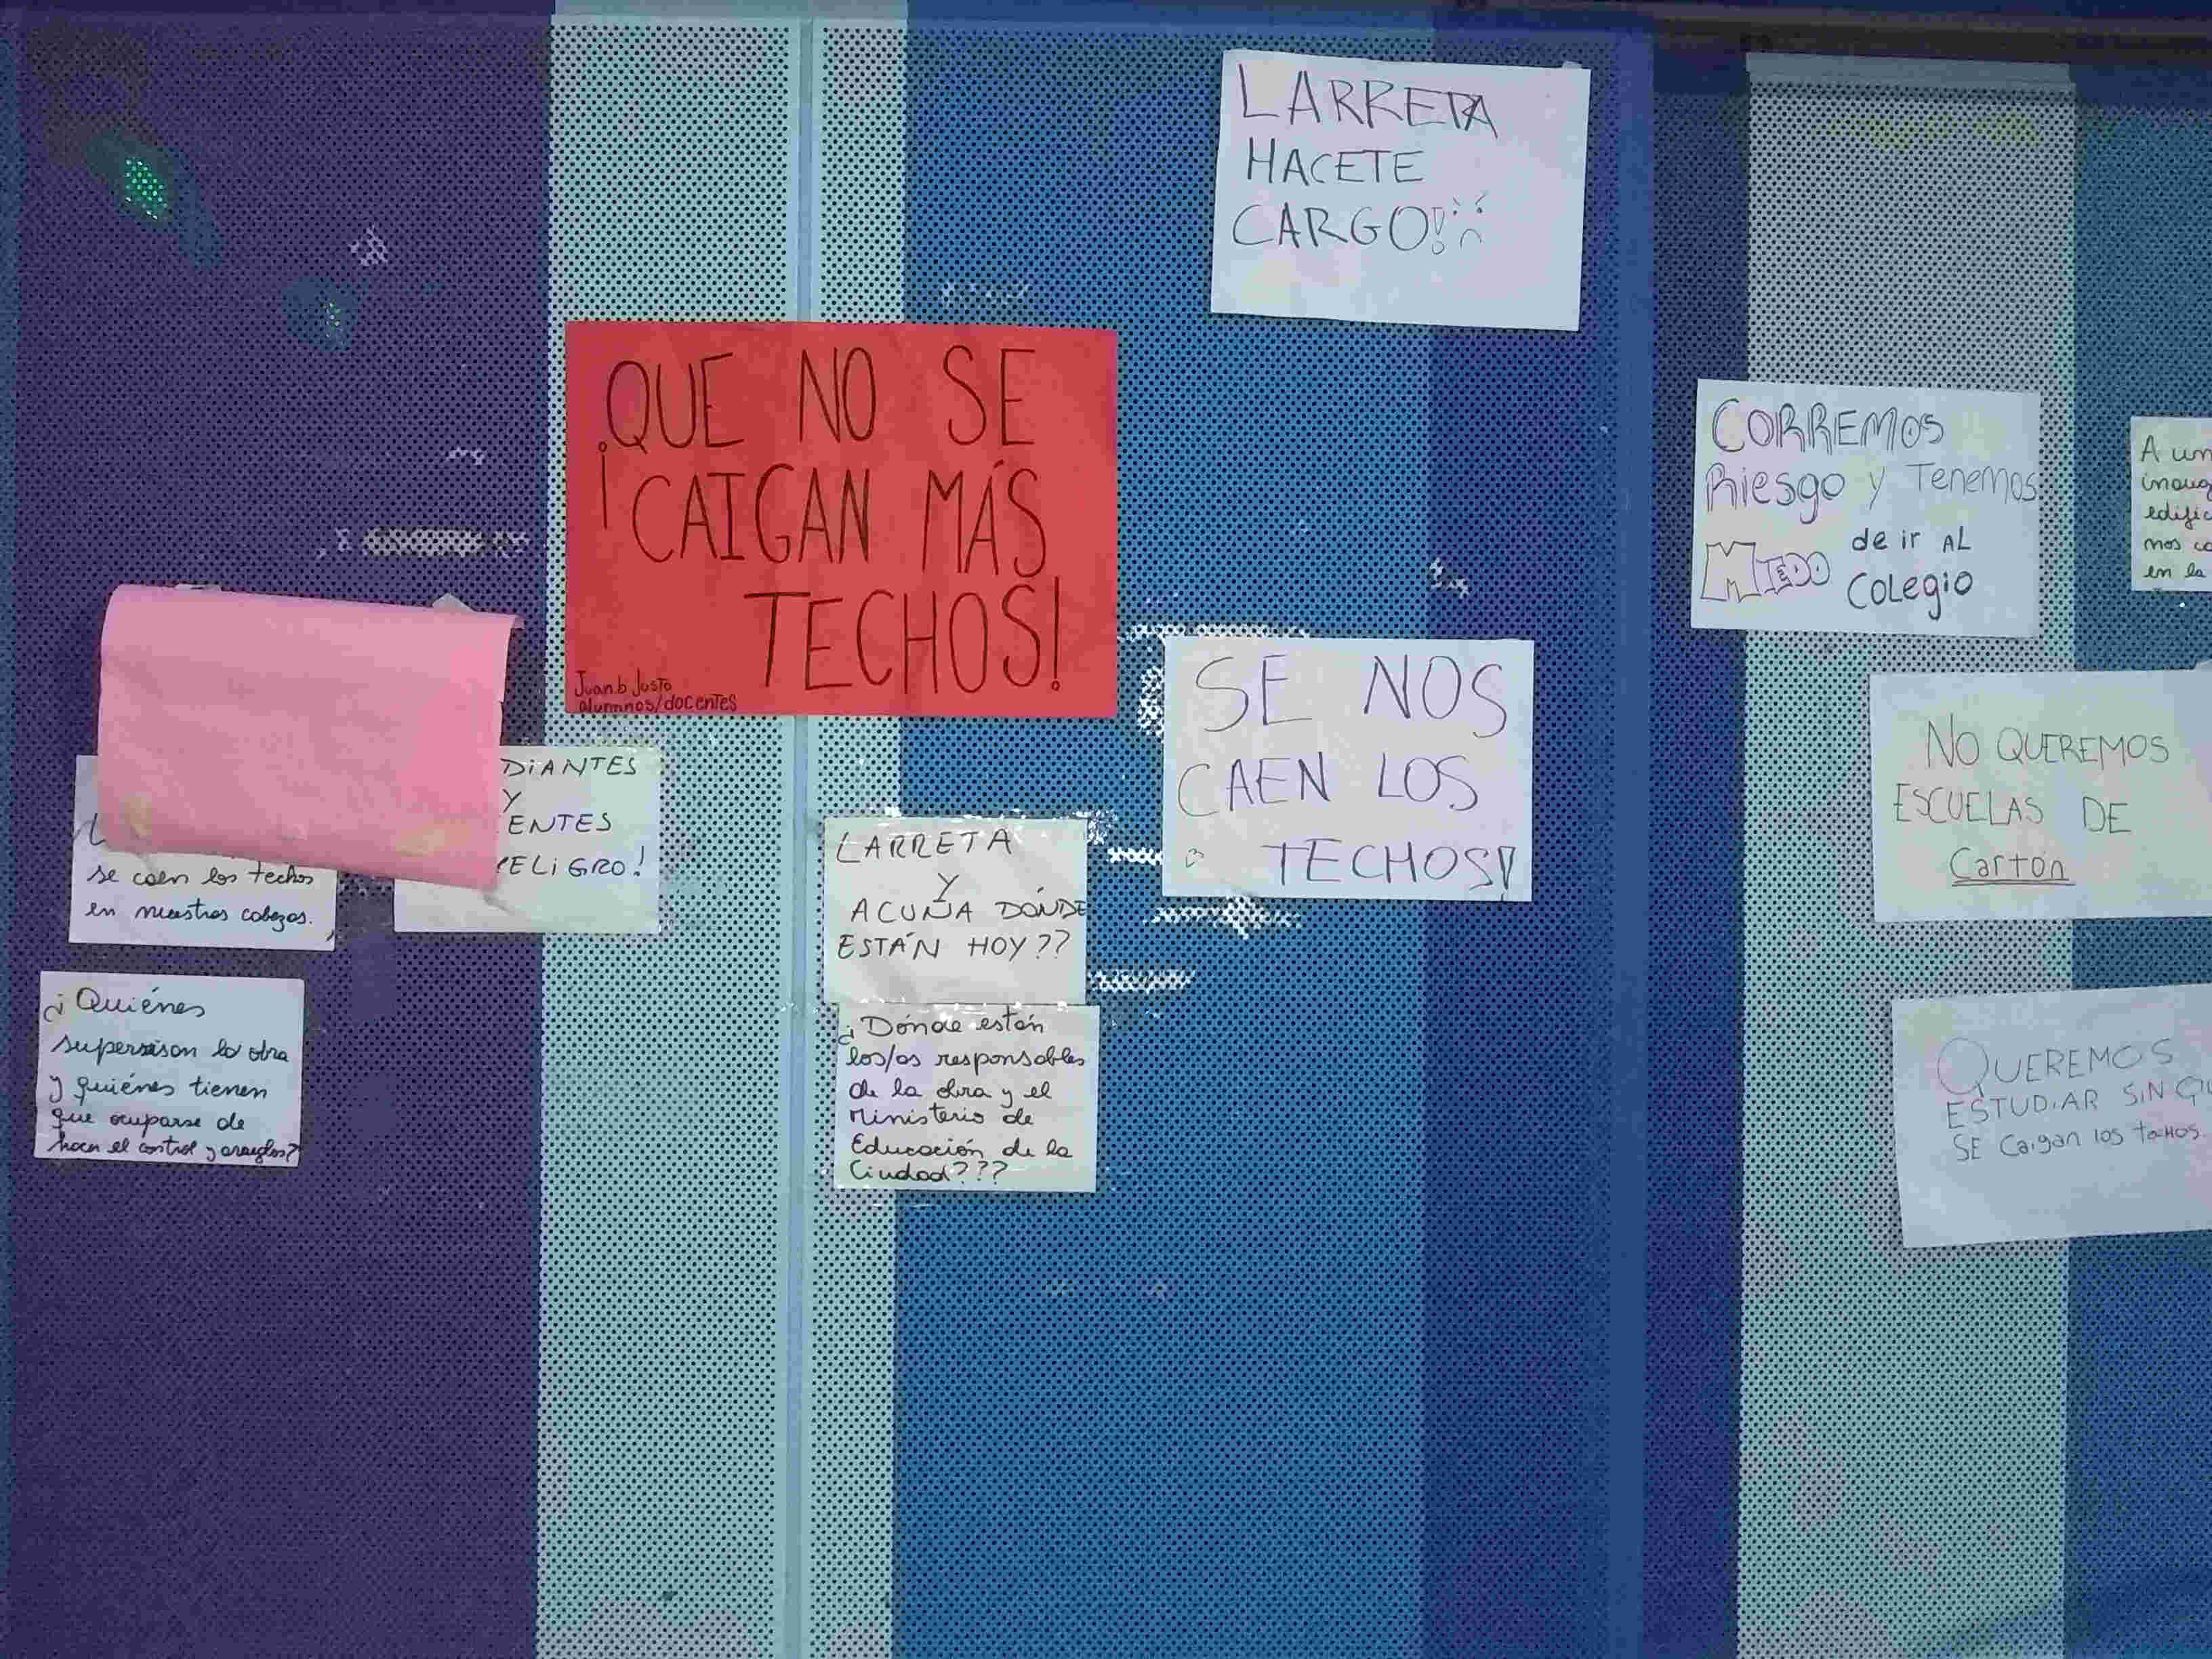 LARRETA
HACETE
CARGO!
¡QUE NO SE
CAIGAN MÁS
TECHOS!
Juan b Justo
alumnos/docentes
CORREMOS
Riesgo y Tenemos
MIEDO de ir AL
Colegio
A un
inaug
edific
mos co
en la
SE NOS
CAEN LOS
TECHOS!
NO QUEREMOS
ESCUELAS DE
Cartón
DIANTES
Y
ENTES
PELIGRO!
se caen los techos
en nuestras cabezas.
LARRETA
Y
ACUÑA DÓNDE
ESTÁN HOY??
¿Quiénes
supervisan la obra
y quiénes tienen
que ocuparse de
hacer el control y arreglos?
¿Dónde están
los/as responsables
de la obra y el
Ministerio de
Educación de la
Ciudad???
QUEREMOS
ESTUDIAR SIN QU
SE Caigan los techos.